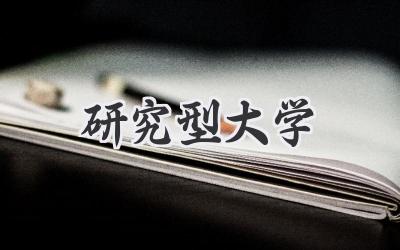 研究型大学